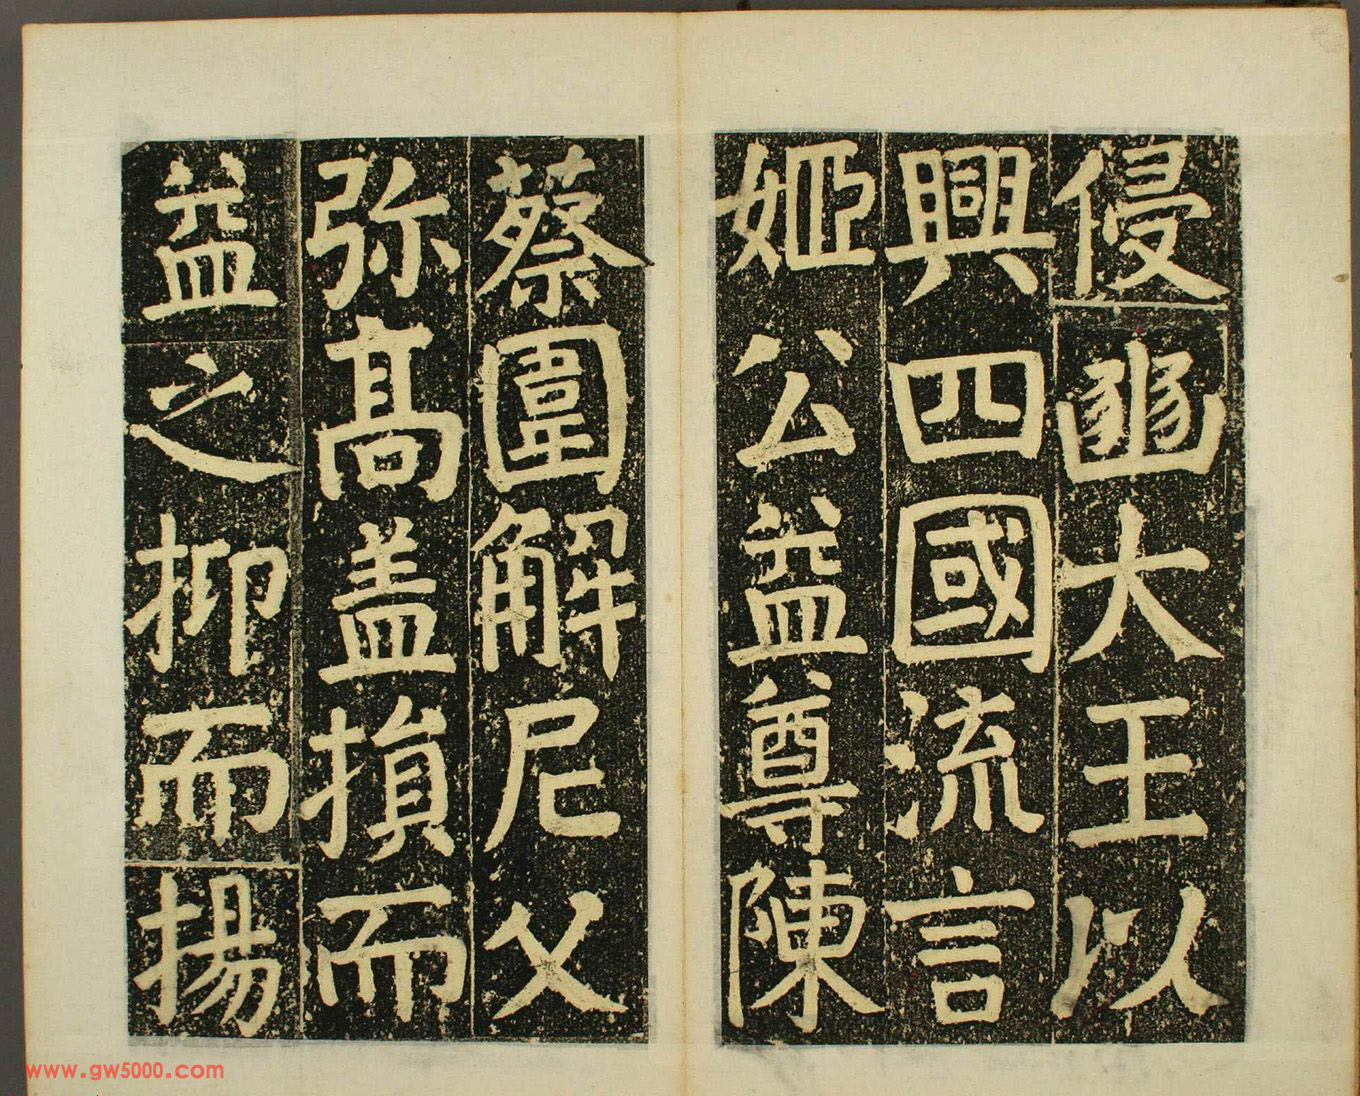 侵豳大王以
興四國流言
姬公益尊陳
蔡圍解尼父
弥高盖損而
益之抑而揚
www.gw5000.com